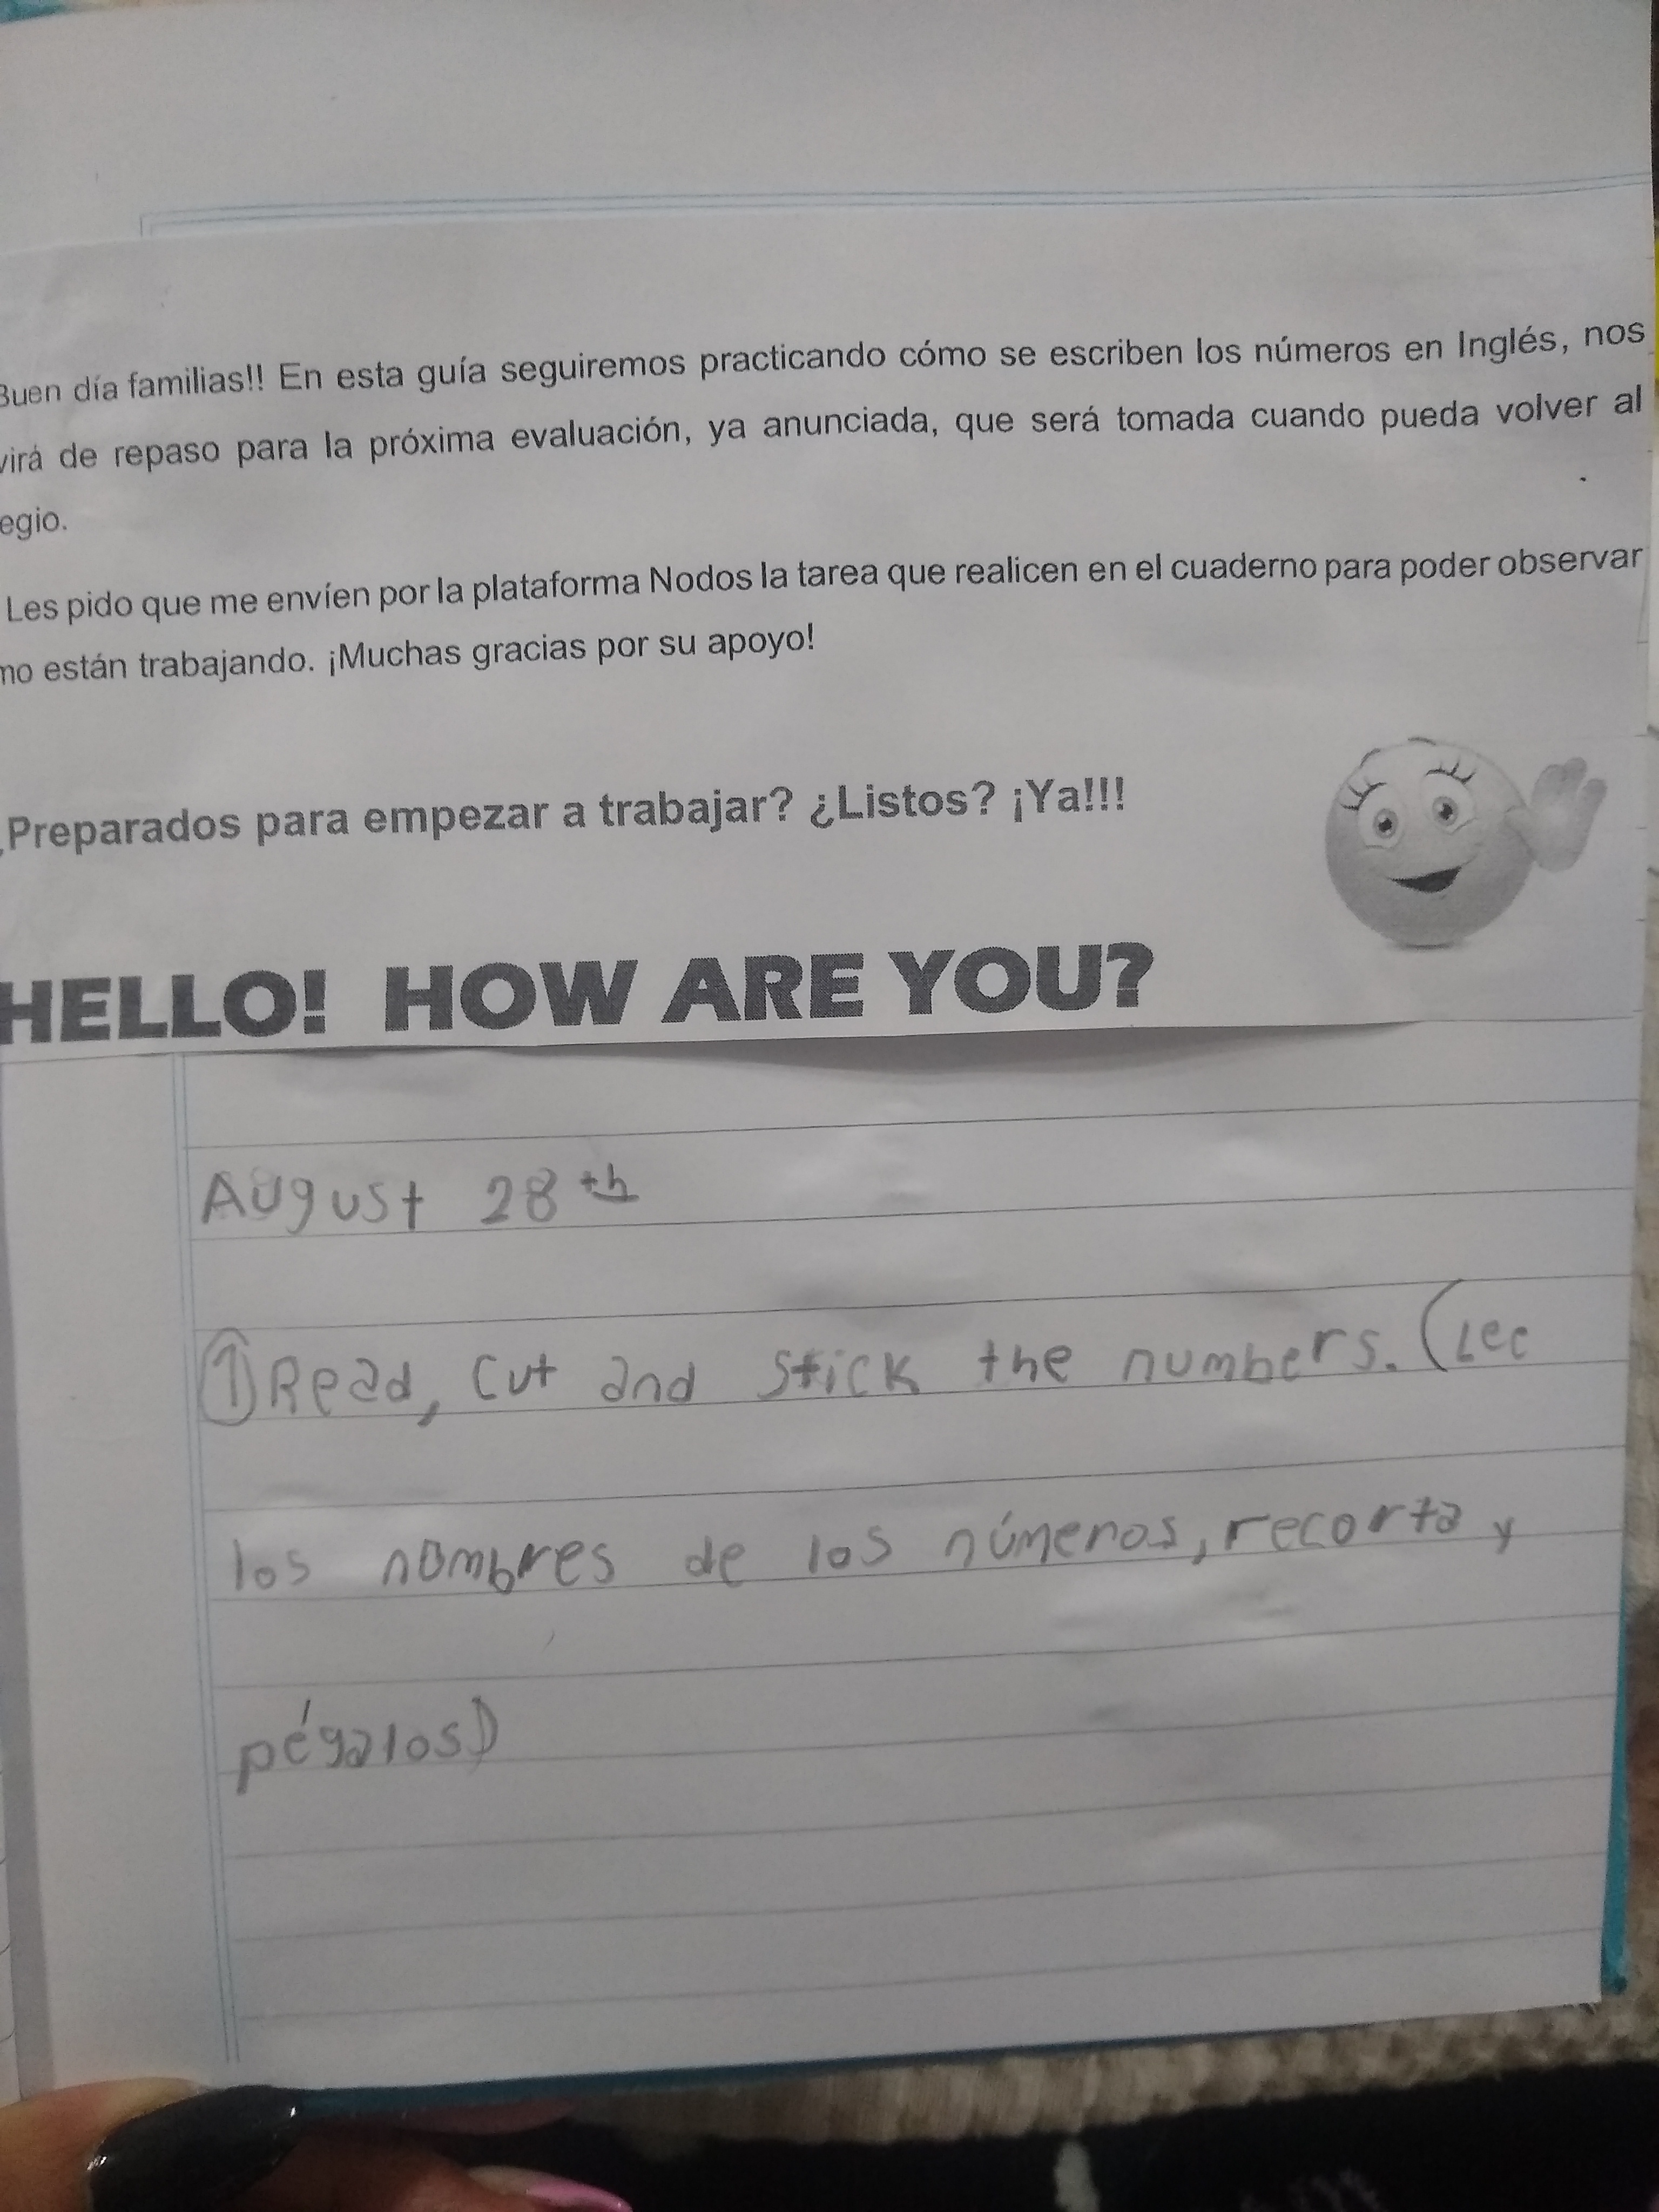 Buen día familias!! En esta guía seguiremos practicando cómo se escriben los números en Inglés, nos
virá de repaso para la próxima evaluación, ya anunciada, que será tomada cuando pueda volver al
egio.
Les pido que me envíen por la plataforma Nodos la tarea que realicen en el cuaderno para poder observar
mo están trabajando. ¡Muchas gracias por su apoyo!
¿Preparados para empezar a trabajar? ¿Listos? ¡Ya!!!
HELLO! HOW ARE YOU?
August 28th
1 Read, cut and stick the numbers. (Lee
los nombres de los números, recorta y
pégalos)